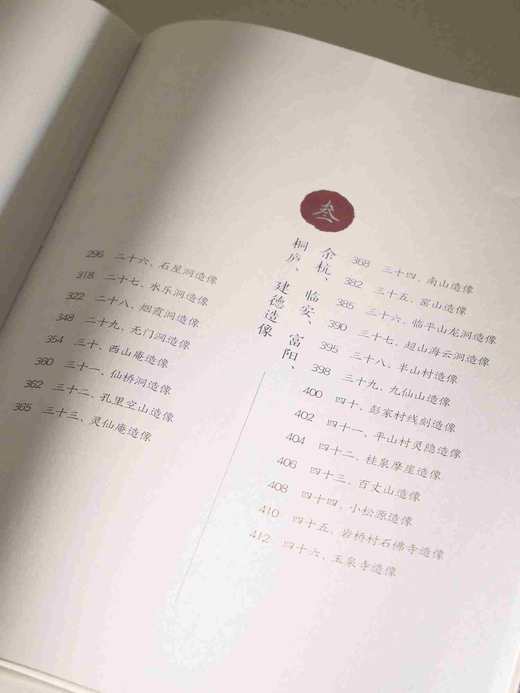 296 二十六、石屋洞造像
318 二十七、水乐洞造像
322 二十八、烟霞洞造像
348 二十九、无门洞造像
354 三十、西山庵造像
360 三十一、仙桥洞造像
362 三十二、孔里空山造像
365 三十三、灵仙庵造像
叁
余杭、临安、富阳、
桐庐、建德造像
368 三十四、南山造像
382 三十五、窑山造像
385 三十六、临平山龙洞造像
390 三十七、超山海云洞造像
395 三十八、半山村造像
398 三十九、九仙山造像
400 四十、彭家村线刻造像
402 四十一、平山村灵隐造像
404 四十二、桂泉摩崖造像
406 四十三、百丈山造像
408 四十四、小松源造像
410 四十五、岩桥村石佛寺造像
412 四十六、玉泉寺造像